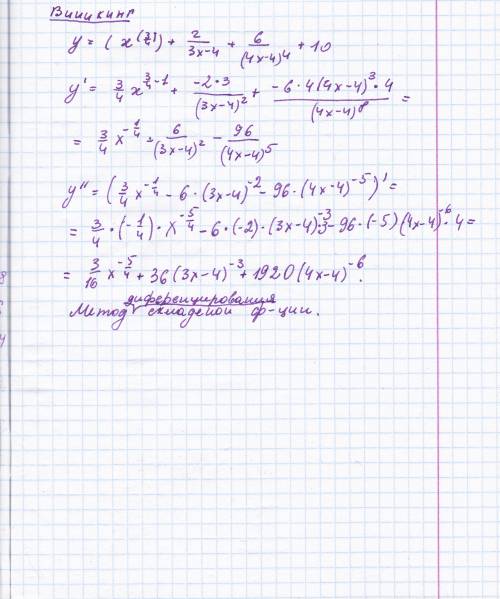 Вишикинг
y = ( x^(3/4) ) + 2/(3x-4) + 6/(4x-4)^4 + 10
y' = 3/4 x^(3/4 - 1) + (-2·3)/(3x-4)^2 + (-6·4(4x-4)^3·4)/(4x-4)^8 =
= 3/4 x^(-1/4) - 6/(3x-4)^2 - 96/(4x-4)^5
y'' = ( 3/4 x^(-1/4) - 6·(3x-4)^(-2) - 96·(4x-4)^(-5) )' =
= 3/4·(-1/4)·x^(-5/4) - 6·(-2)·(3x-4)^(-3)·3 - 96·(-5)(4x-4)^(-6)·4 =
= 3/16 x^(-5/4) + 36(3x-4)^(-3) + 1920(4x-4)^(-6).
диференцирования
Метод складеной ф-ции.